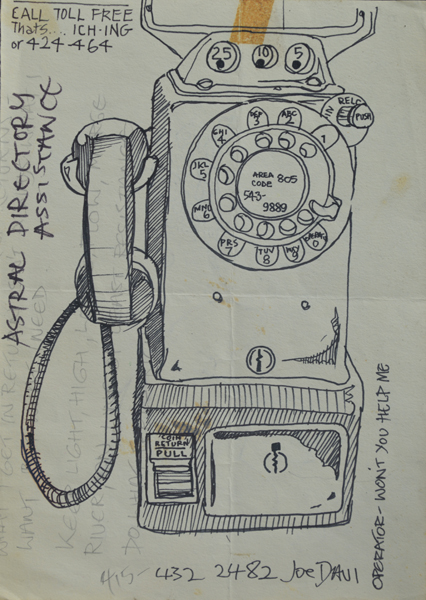 CALL TOLL FREE
Thats.... ICH-ING
or 424-464
ASTRAL DIRECTORY
ASSISTANCE
25 10 5
RELC
PUSH
1
ABC 2
DEF 3
GHI 4
JKL 5
MNO 6
PRS 7
TUV 8
WXY 9
0
AREA
CODE 805
543-
9889
COIN
RETURN
PULL
KEEP LIGHT, HIGH,
WANT
NEED
OPERATOR- WON'T YOU HELP ME
415- 432 2482 Joe DAVI